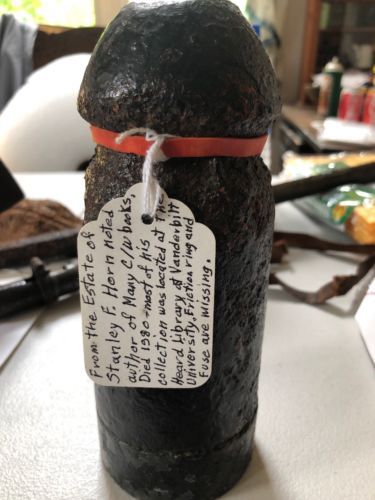 From the Estate of
Stanley F. Horn noted
author of Many C/W books,
Died 1980 - most of his
collection was located at the
Heard Library of Vanderbilt
University. Friction ring and
Fuse are missing.